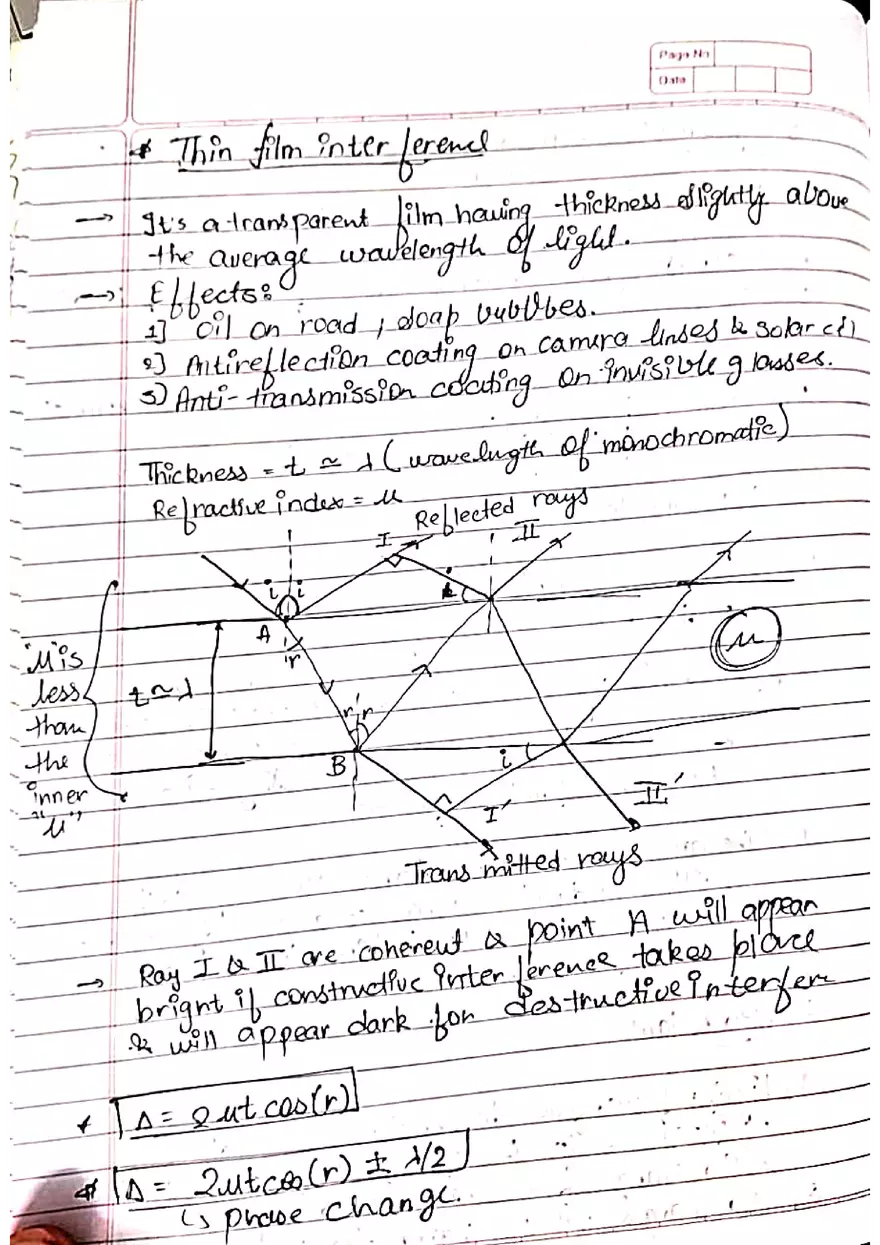 Page No
Date
* Thin film interference
→ It's a transparent film having thickness slightly above
the average wavelength of light.
→ Effects:
1] Oil on road, soap bubbles.
2] Antireflection coating on camera linses & solar cell
3) Anti-transmission coating on invisible glasses.
Thickness = t ≃ λ (wavelength of monochromatic)
Refractive index = μ
Reflected rays
I II
i i i
A
r
"μ is
less
than
the
inner
"μ"
t ≃ λ
μ
r r
B
i
I' II'
Transmitted rays
→ Ray I & II are coherent & point A will appear
bright if constructive interference takes place
& will appear dark for destructive interfer
* Δ = 2μt cos(r)
* Δ = 2μt cos(r) ± λ/2
↳ phase change.